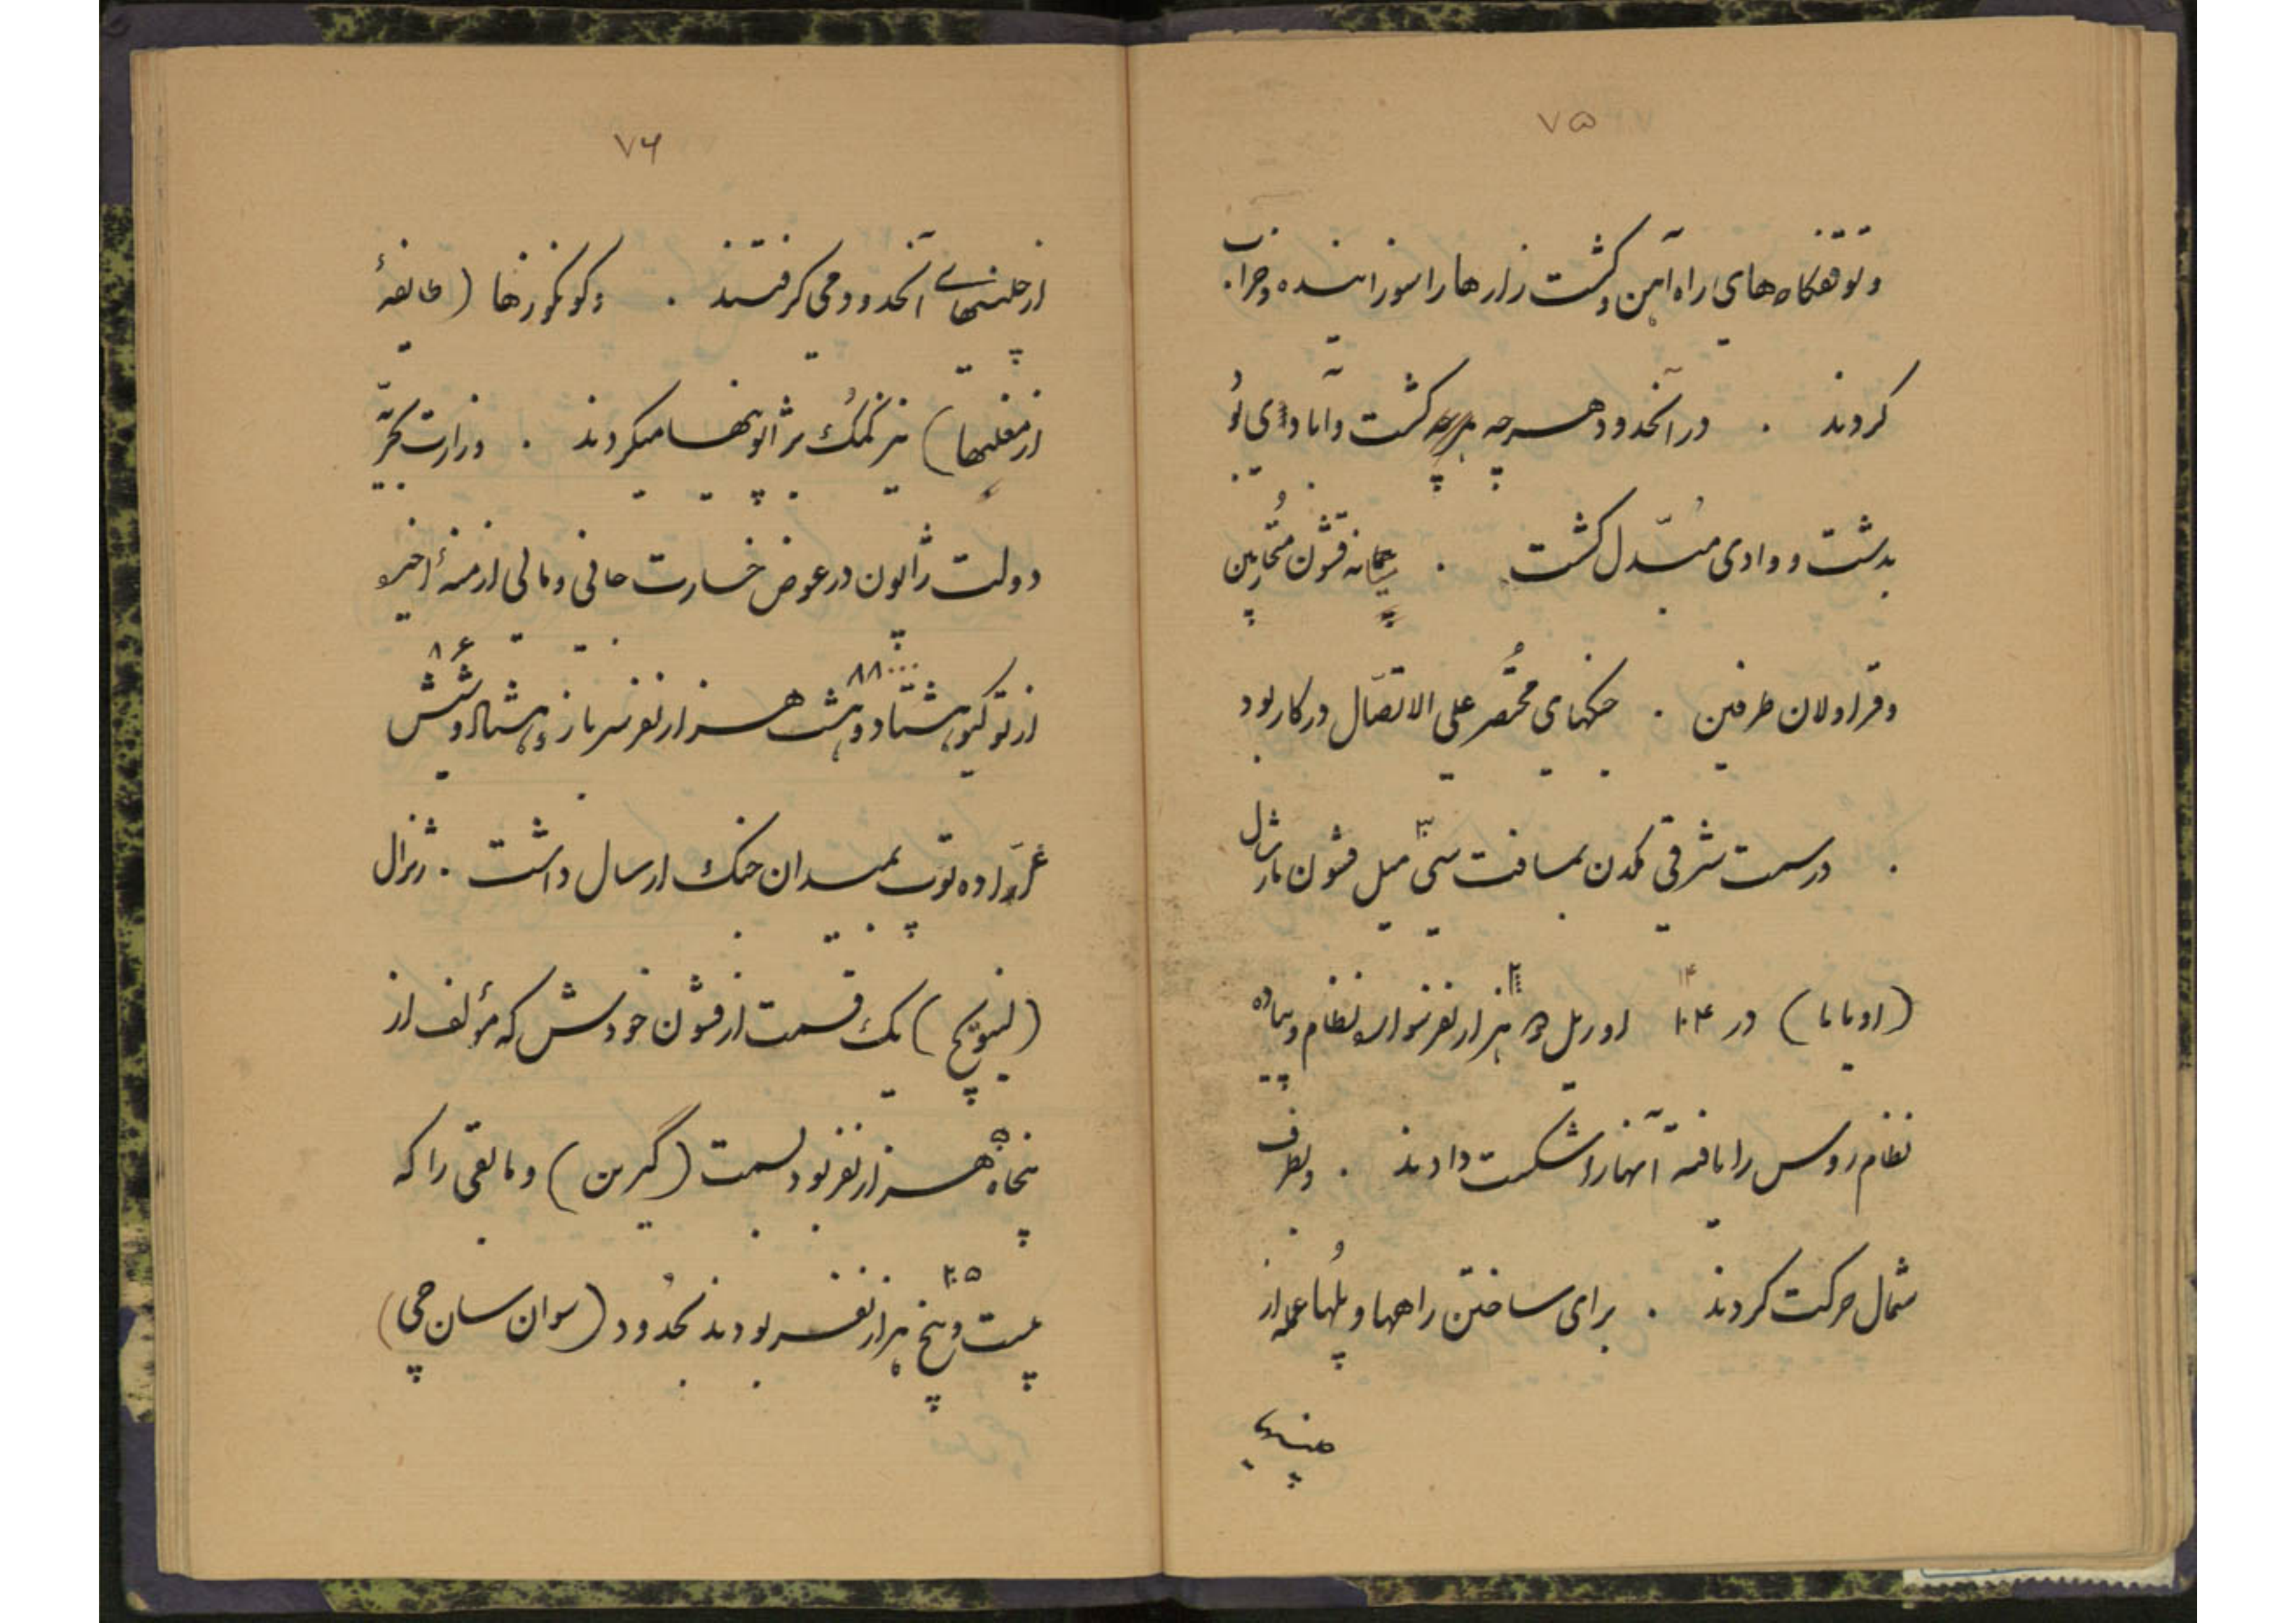 ۷۵
و توقفگاه‌های راه آهن و کشت زارها را سوزانیده و خراب
کردند . در آنحدود هرچه کشت و آبادی بُو
بدشت و وادی مبّدل گشت . میانه قشون مُتحاربین
و قراولان طرفین . جنگهای مُختصر علی الاتصّال در کار بود
. در سمت شرقی مکدن بمسافت سی ۳۰ میل قشون مارشال
(اویاما) در ۱۴ اوریل هزار نفر سواره نظام و پیاده
نظام روس را یافته آنها را شکست دادند . و بطرف
شمال حرکت کردند . برای ساختن راهها و پُلها عمله از
چینیهای
۷۶
از چینیهای آنحدود می گرفتند . و کونکوزها (طایفهٔ
از مغلیها) نیز کُمک بر ژاپونیها میکردند . وزارت بحرّیّه
دولت ژاپون در عوض خسارت جانی و مالی ازمنهٔ اخیره
از توکیو هشتاد و هشت ۸۸۰۰۰ هزار نفر سرباز و هشتاد و شش ۸۶
عرّاده توپ بمیدان جنگ ارسال داشت . ژنرال
(لینویچ) یک قسمت از قشون خودش که مؤلف از
پنجاه ۵۰ هزار نفر بود بسمت (گیرین) و مابقی را که
بیست و پنج ۲۵ هزار نفر بودند بحُدود (سوان سان چی)